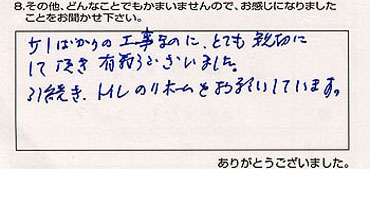 8.その他、どんなことでもかまいませんので、お感じになりました
ことをお聞かせ下さい。
ばかりの工事なのに、とても親切に
して頂き有難うございました。
引続き、トイレのリホームをお願いしています。
ありがとうございました。